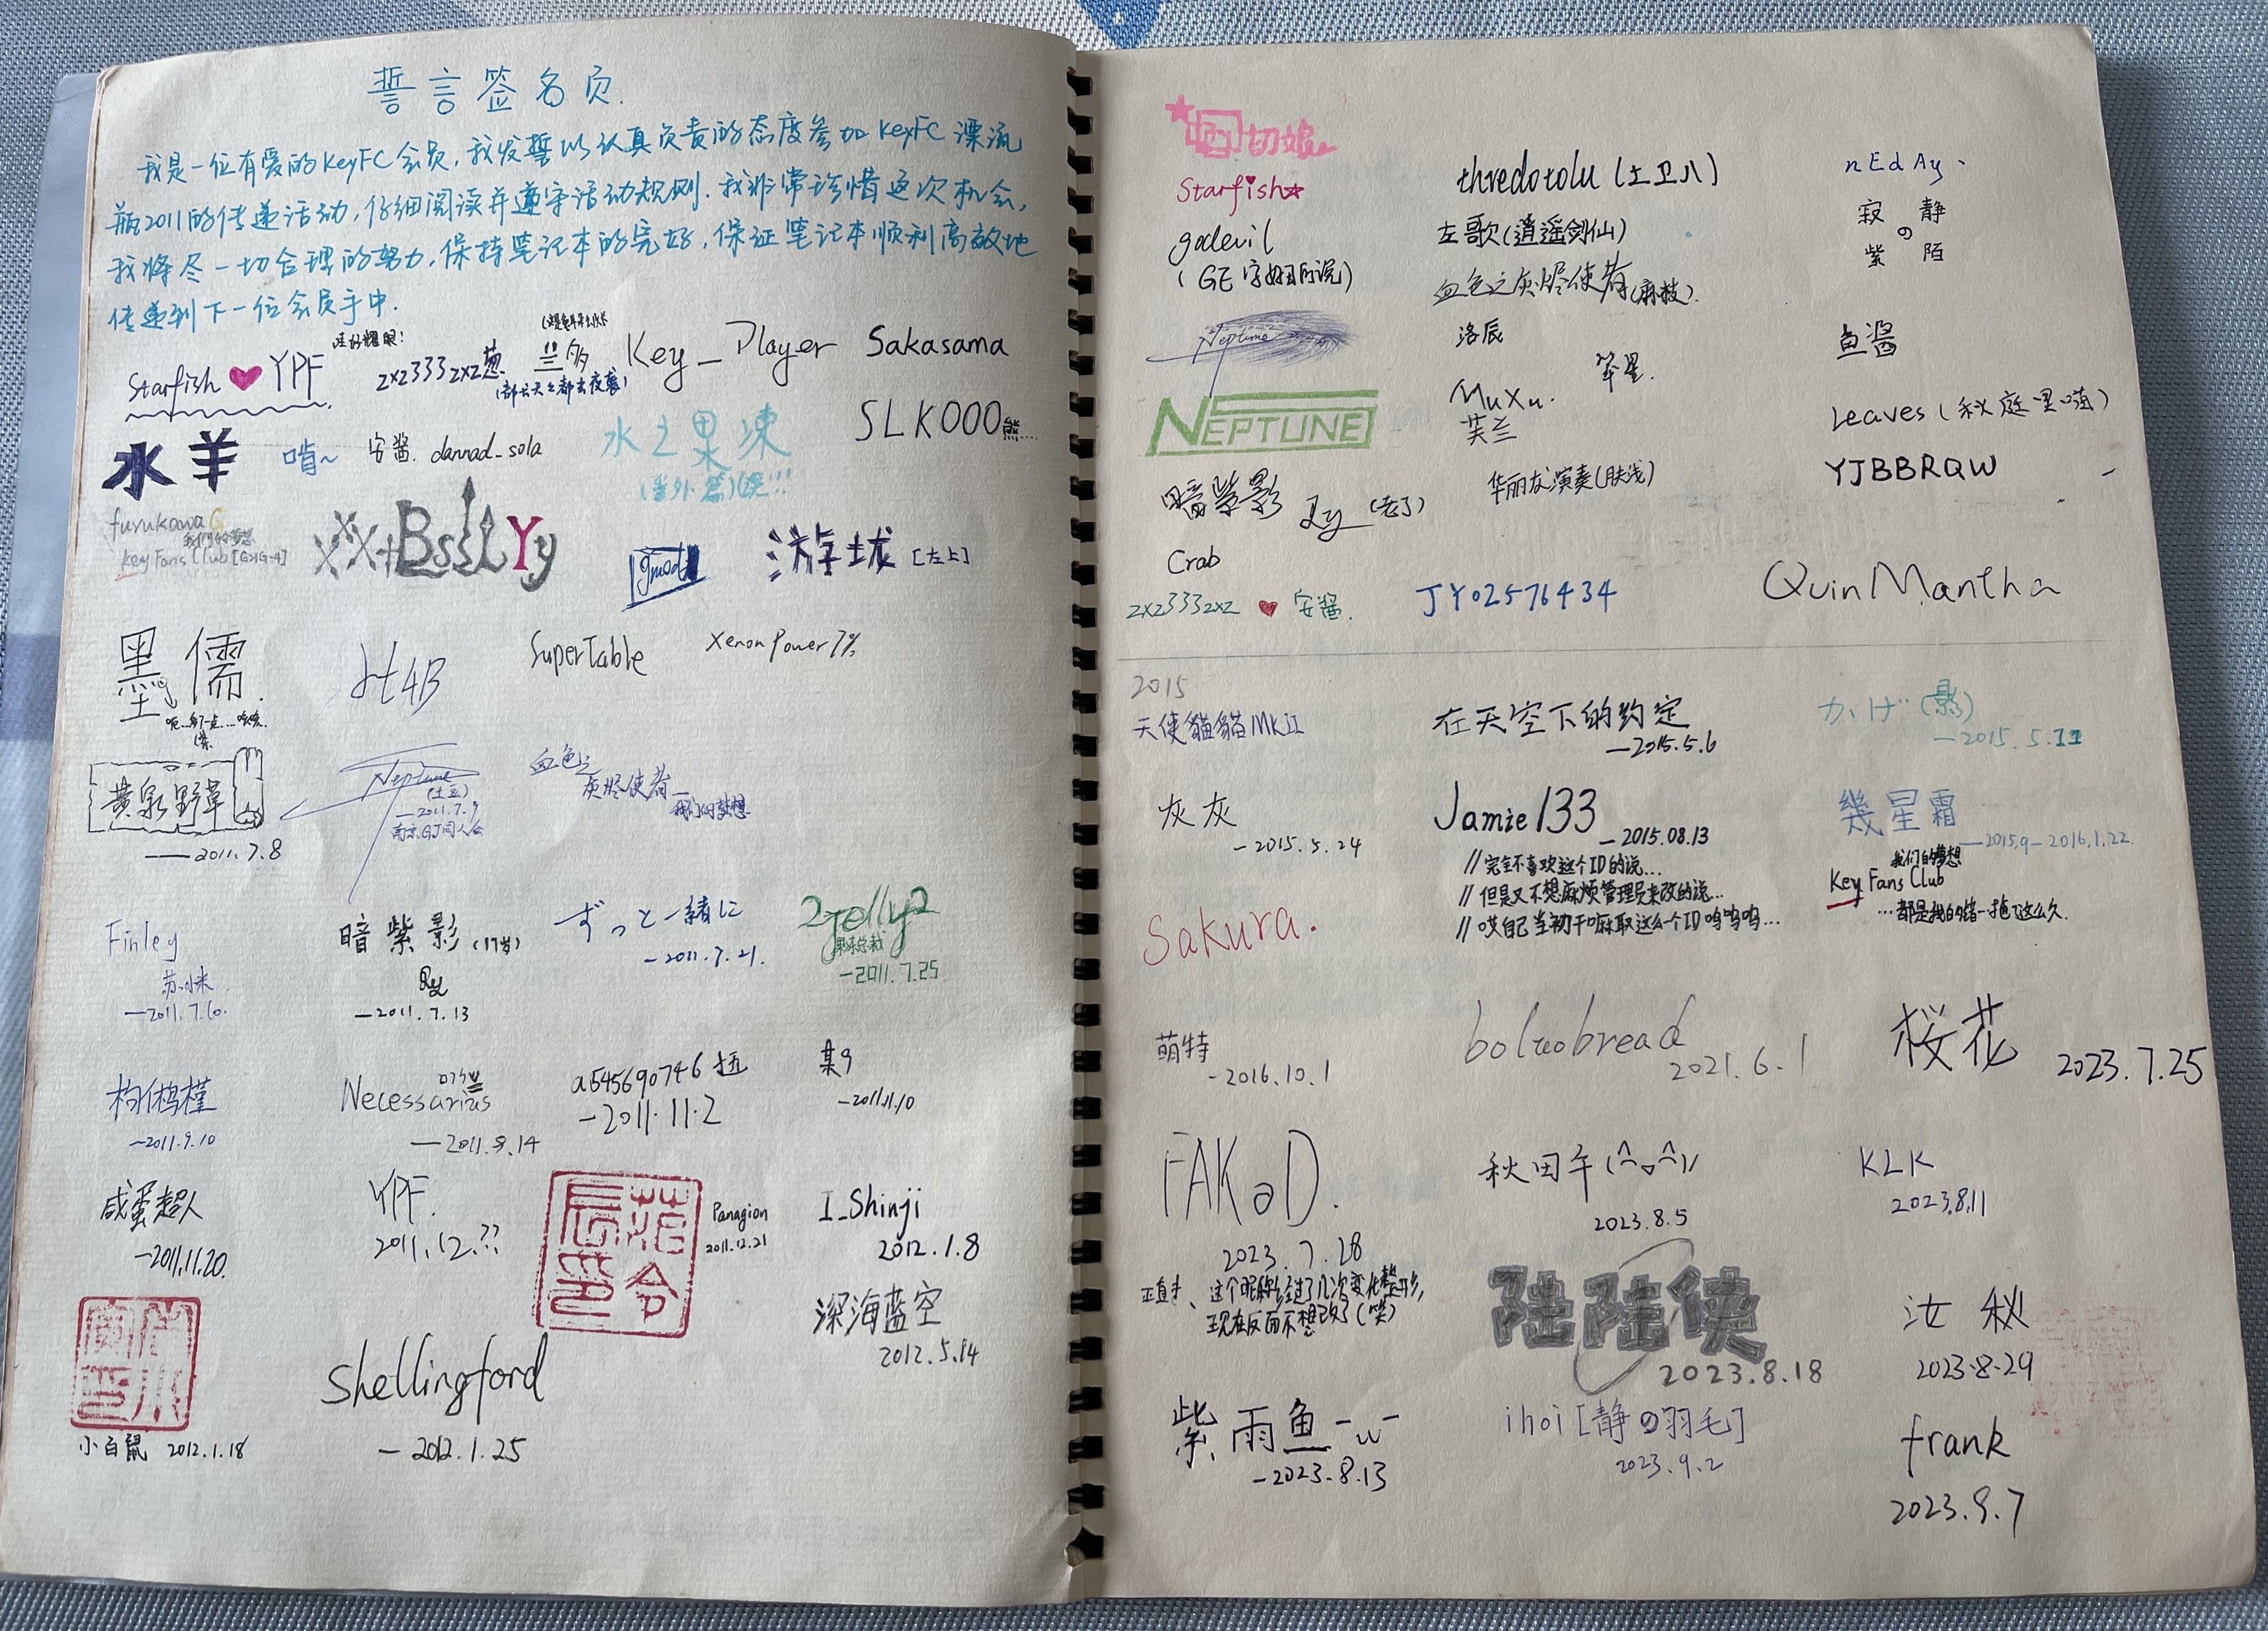 誓言签名页.
我是一位有爱的KeyFC会员,我发誓以认真负责的态度参加KeyFC漂流
瓶2011的传递活动,仔细阅读并遵守活动规则.我非常珍惜这次机会,
我将尽一切合理的努力,保持笔记本的完好,保证笔记本顺利高效地
传递到下一位会员手中.
Starfish ♥ YPF
zxz333zxz葱
兰多
Key_Player
Sakasama
水羊
啃~
安酱. dannad_sola
水之果冻
(番外篇)
SLK000熊...
furukawaG
我們的夢想
Key Fans Club [G>G-4]
gmod
游城 [左上]
黑儒.
Ht4B
SuperTable
XenonPower7%
黄泉野草
——2011.7.8
Neptune
(土豆)
—2011.7.9
南京GJ同人会
血色之
灰烬使者—
我们的梦想
Finley
苏小米
—2011.7.10.
暗紫影(17岁)
—2011.7.13
ずっと一緒に
—2011.7.21.
2jelly2
果冻总裁
—2011.7.25
—2011.9.10
Necessarius
—2011.9.14
a545690746
—2011.11.2
某9
—2011.11.10
咸蛋超人
—2011.11.20.
YPF.
2011.12.??
Panagion
2011.12.21
I_Shinji
2012.1.8
深海蓝空
2012.5.14
小白鼠 2012.1.18
Shellingford
— 2012.1.25
切娘
Starfish☆
godevil
(GE字母所说)
thredotolu (土卫八)
左歌(逍遥剑仙)
血色之灰烬使者(麻枝).
nEdAy.
寂静
の
紫陌
Neptune
NEPTUNE
洛辰
笨星.
MuXu.
芙兰
鱼酱
Leaves (秋庭里喵)
YJBBRQW
暗紫影
(老了)
华丽友演奏(肤浅)
Crab
zxz333zxz ♥ 安酱.
JY02576434
QuinMantha
2015
天使貓貓MkII
在天空下的约定
—2015.5.6
かげ(影)
—2015.5.11
灰灰
—2015.5.24
Jamie133
—2015.08.13
// 完全不喜欢这个ID的说...
// 但是又不想麻烦管理员来改的说...
// 哎自己当初干嘛取这么个ID呜呜呜...
幾星霜
—2015.9-2016.1.22
我们的夢想
Key Fans Club
...都是我的错一拖了这么久.
Sakura.
萌特
—2016.10.1
boluobread
2021.6.1
桜花
2023.7.25
FAKaD.
2023.7.28
这个昵称经过了几次变化整形,
现在反而不想改了(笑)
秋田午(^o^)/
2023.8.5
KLK
2023.8.11
陆陆侠
2023.8.18
汝秋
2023.8.29
紫雨鱼-w-
—2023.8.13
ihoi[静の羽毛]
2023.9.2
frank
2023.9.7